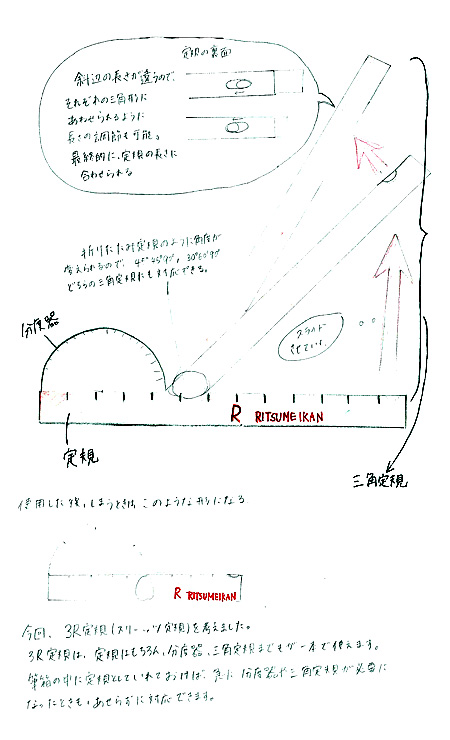 定規の裏面
斜辺の長さが違うので、
それぞれの三角形に
あわせられるように
長さの調節も可能。
最終的に、定規の長さに
合わせられる
折りたたみ定規のように角度が
変えられるので、45°45°90°, 30°60°90°
どちらの三角定規にも対応できる。
分度器
スライド
させていく
R RITSUMEIKAN
定規
三角定規
使用した後、しまうときは、このような形になる
R RITSUMEIKAN
今回、3R定規(スリーアール定規)を考えました。
3R定規は、定規はもちろん、分度器、三角定規までもが一本で使えます。
筆箱の中に定規としていれておけば、急に分度器や三角定規が必要に
なったときも、あせらずに対応できます。